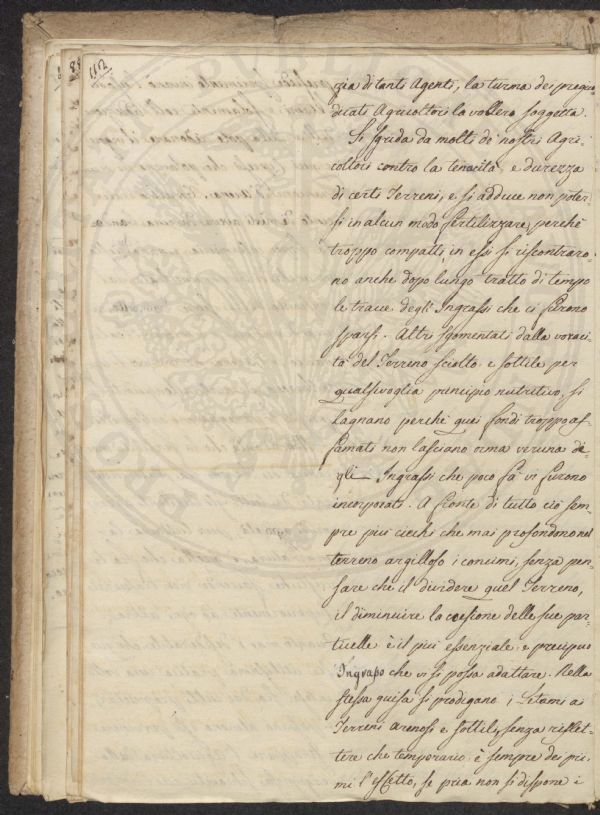 112
zia di tanti Agenti, la turma dei pregiu-
dicati Agricoltori lo vollero soggetta.
Si sgrida da molti de' nostri Agri-
coltori contro la tenacità, e durezza
di certi Terreni, e si adduce non poter-
si in alcun modo fertilizzare, perchè
troppo compatti, in essi si riscontraro-
no anche dopo lungo tratto di tempo
le tracce degl' Ingrassi che ci furono
sparsi. Altri sgomentati dalla voraci-
tà del Terreno sciolto e sottile per
qualsivoglia principio nutritivo, si
lagnano perchè quei fondi troppo af-
famati non lasciano orma veruna de-
gli Ingrassi che poco fà vi furono
incorporati. A fronte di tutto ciò sem-
pre più ciechi che mai profondono nel
terreno argilloso i concimi, senza pen-
sare che il dividere quel Terreno,
il diminuire la coesione delle sue par-
ticelle è il più essenziale e precipuo
Ingrasso che vi si possa adattare. Nella
stessa guisa si prodigano i letami ai
Terreni arenosi e sottili, senza riflet-
tere che temporario è sempre dei pri-
mi l'effetto, se pria non si dispone i